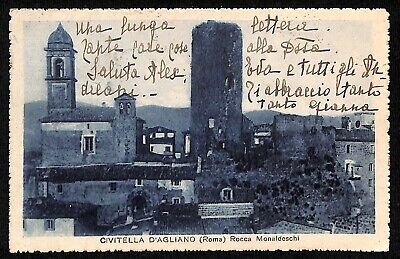 Una lunga lettera
tante care cose alla
Saluta
Eda e tutti gli
Ti abbraccio tanto
tanto Gianna
CIVITELLA D'AGLIANO (Roma) Rocca Monaldeschi